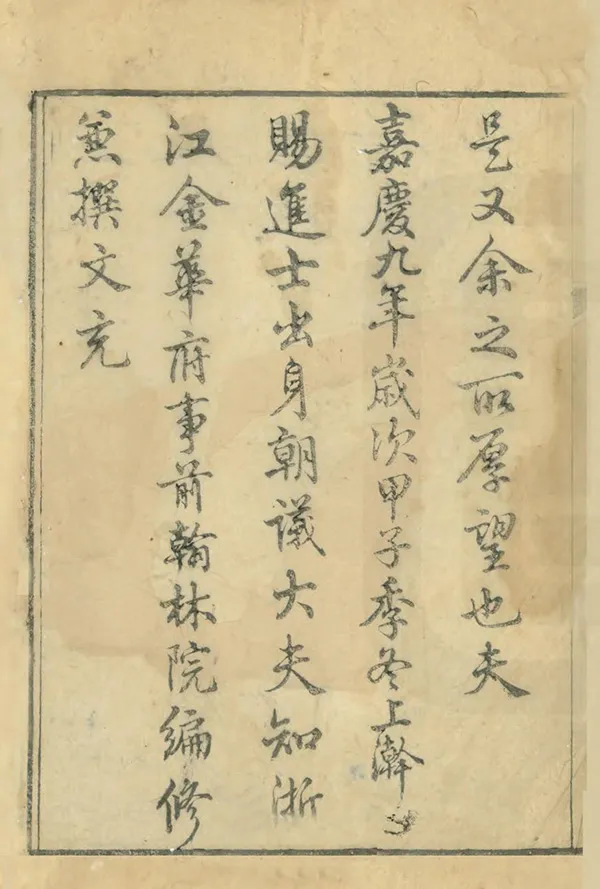 是又余之所厚望也夫
嘉慶九年歲次甲子季冬上澣
賜進士出身朝議大夫知浙
江金華府事前翰林院編修
兼撰文充